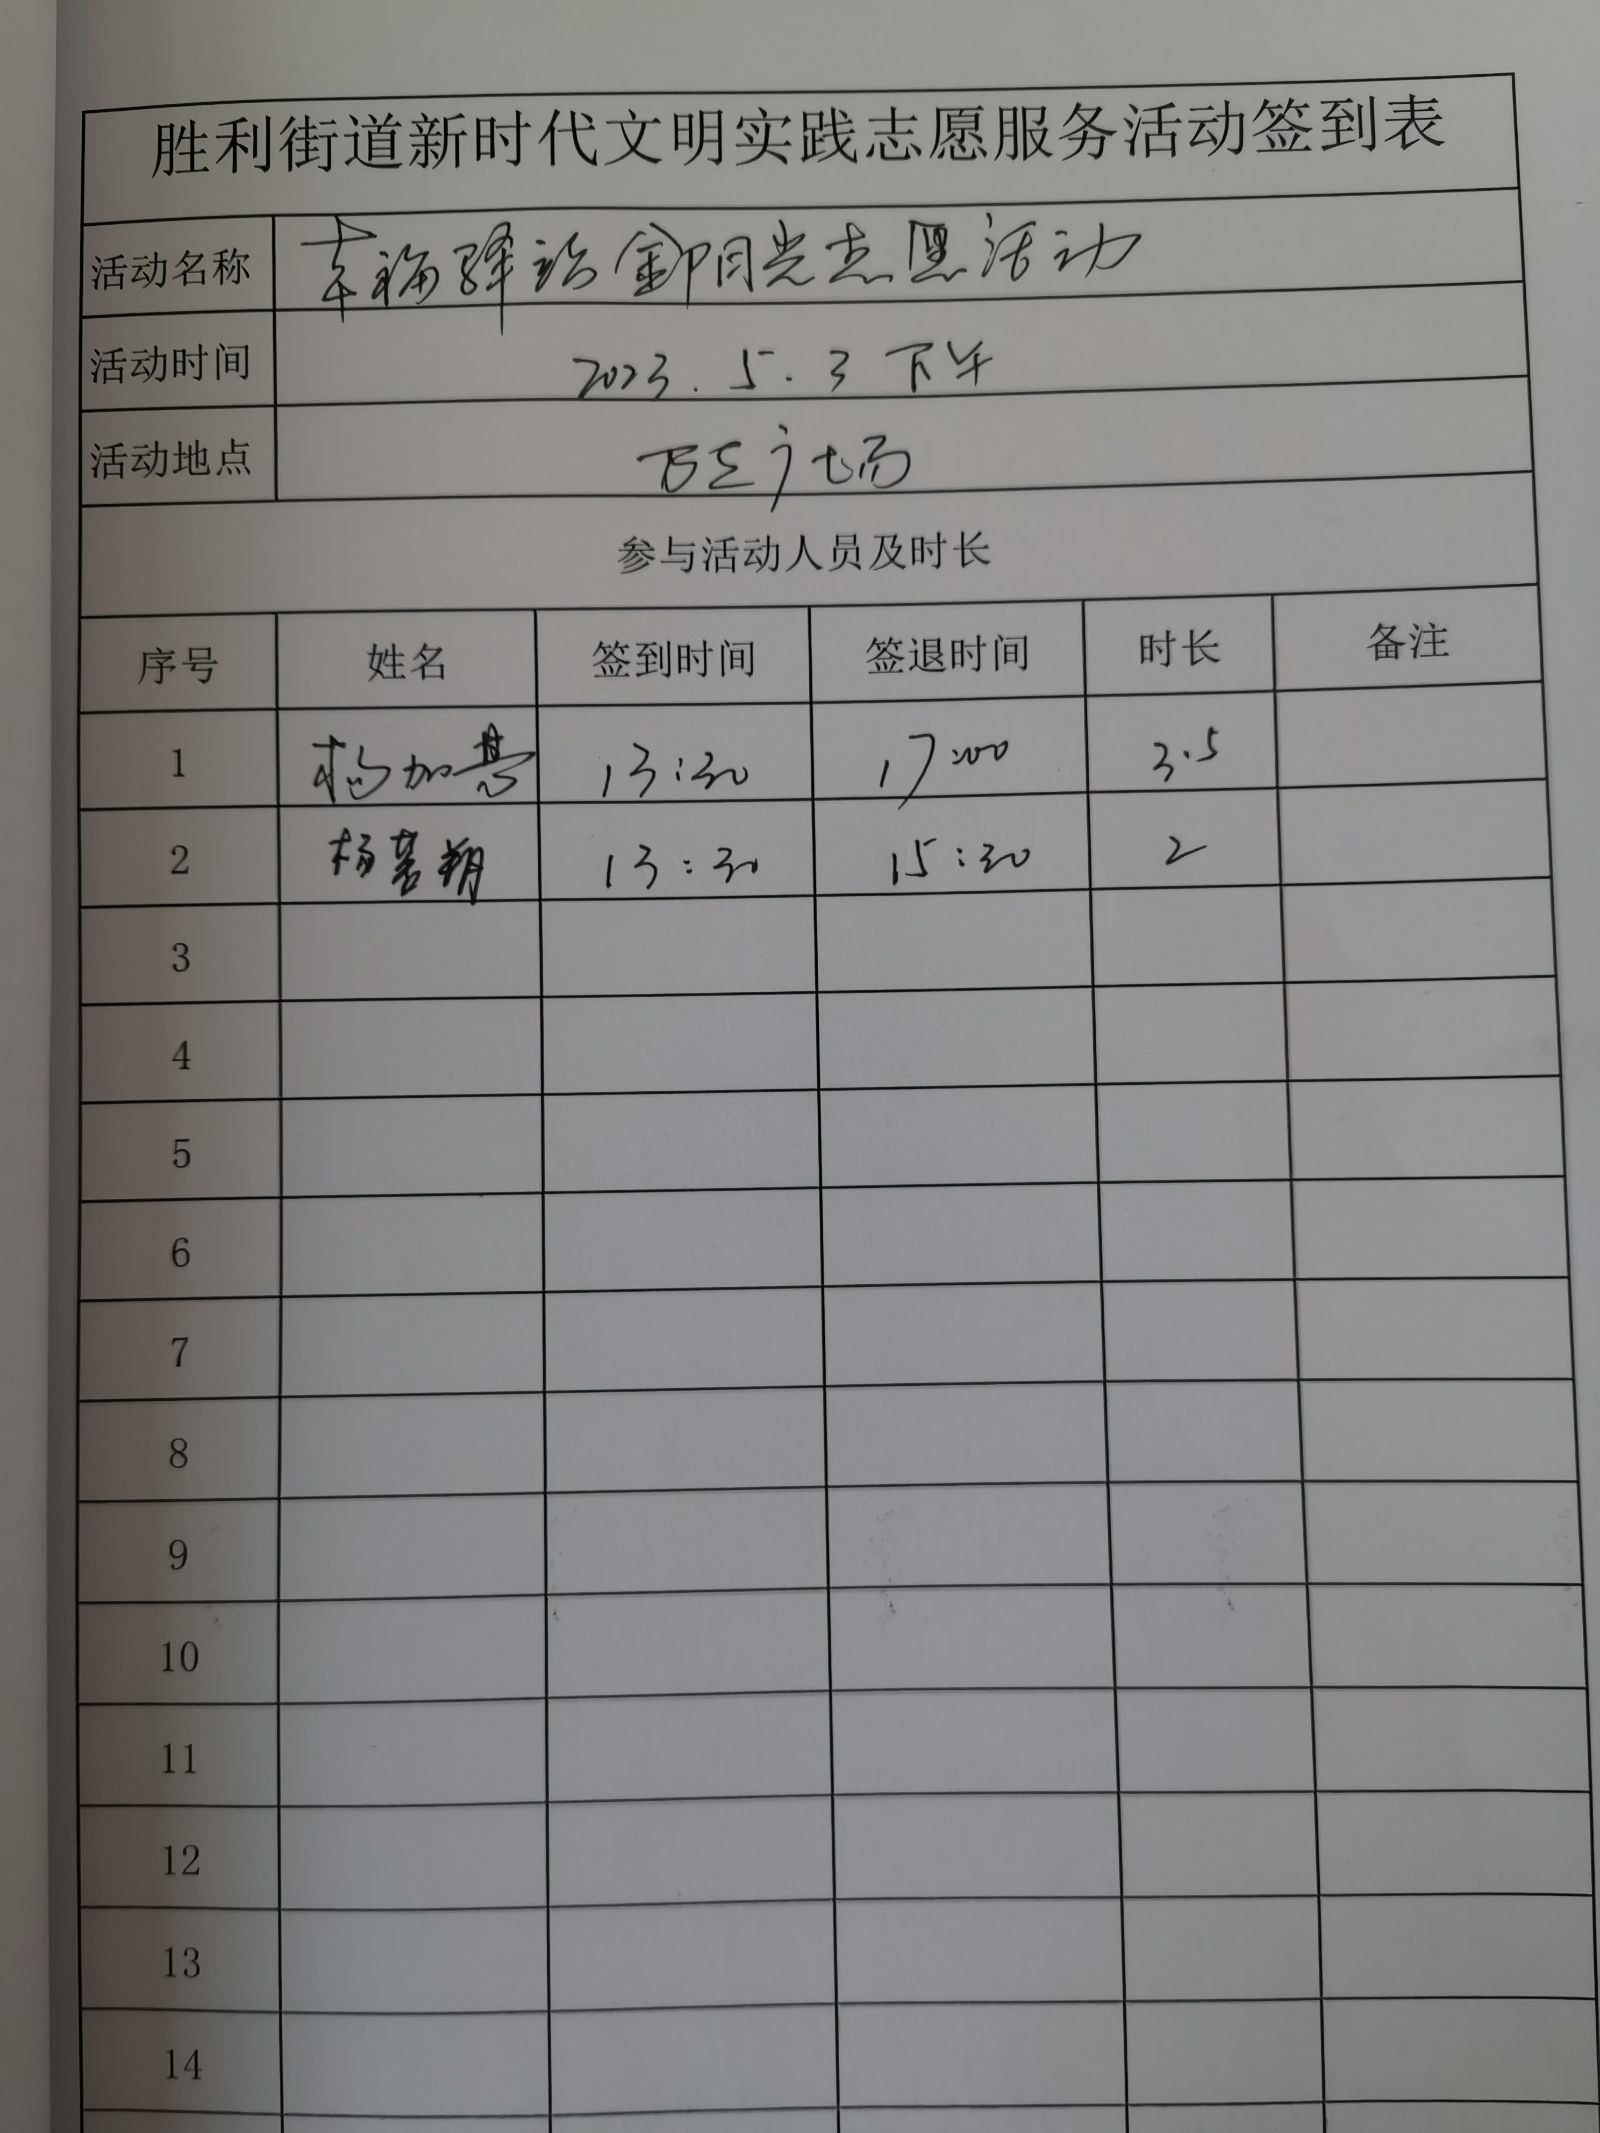 胜利街道新时代文明实践志愿服务活动签到表
活动名称 幸福驿站 阳光志愿活动
活动时间 2023.5.3 下午
活动地点 万达广场
参与活动人员及时长
序号 姓名 签到时间 签退时间 时长 备注
1 杨加慧 13:30 17:00 3.5
2 杨 翔 13:30 15:30 2
3
4
5
6
7
8
9
10
11
12
13
14